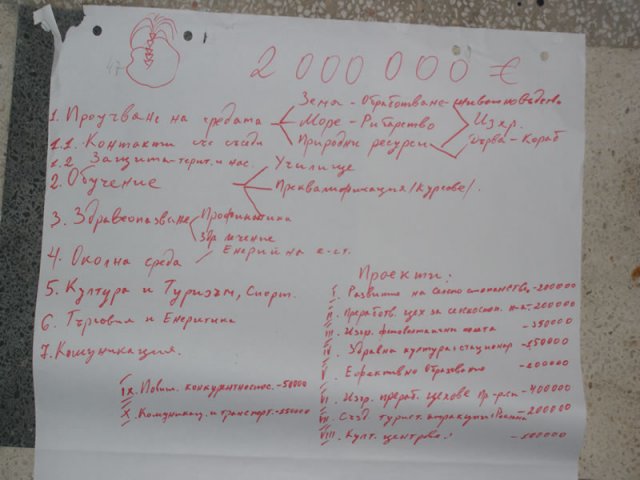 47
2 000 000 €
1. Проучване на средата
Земя - Обработване - животновъдство
Море - Рибарство
Природни ресурси
Дърва - Кораб
1.1. Контакти със съседи
1.2 Защита - терит. и нас.
2. Обучение
Училище
Преквалификация /Курсове/.
3. Здравеопазване
Профилактика
Здр. лечение
4. Околна среда
5. Култура и Туризъм, Спорт.
6. Търговия и Енергетика
7. Комуникация.
Проекти:
I. Развитие на селско стопанство - 200000
II. Преработв. цех за селскостоп. - 200000
III. Изгр. фотоволтаични - 250000
IV. Здравна култура + стационар - 150000
V. Ефективно Образование - 200000
VI. Изгр. прераб. цехове - 400000
VII. Създ. турист. атракции - 200000
VIII. Култ. центрове. -
IX. Повиш. конкурентноспос. - 50000
X. Комуникац. и транспорт. - 250000